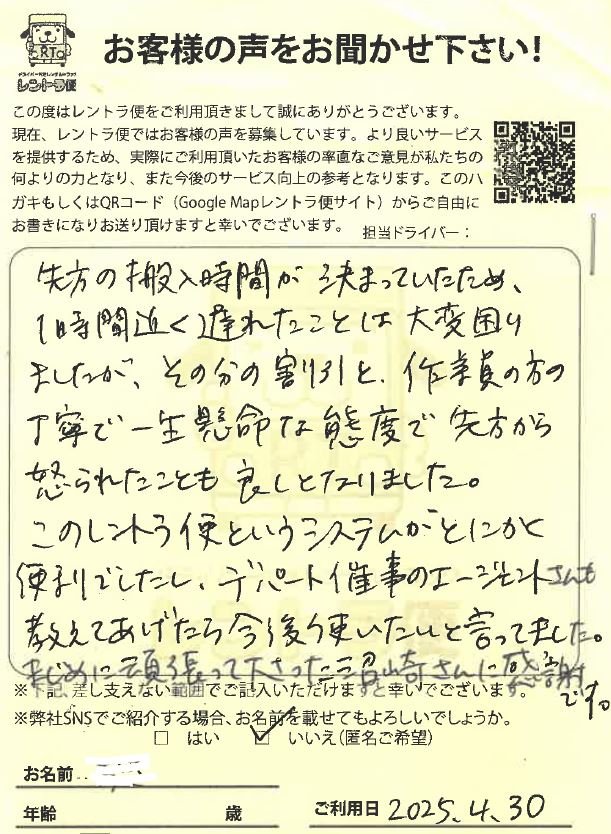 RTO
ドライバー付きレンタルトラック
レントラ便
お客様の声をお聞かせ下さい!
この度はレントラ便をご利用頂きまして誠にありがとうございます。
現在、レントラ便ではお客様の声を募集しています。より良いサービス
を提供するため、実際にご利用頂いたお客様の率直なご意見が私たちの
何よりの力となり、また今後のサービス向上の参考となります。このハ
ガキもしくはQRコード（Google Mapレントラ便サイト）からご自由に
お書きになりお送り頂けますと幸いでございます。 担当ドライバー：
先方の搬入時間が決まっていたため、
1時間近く遅れたことは大変困り
ましたが、その分の割引と、作業員の方の
丁寧で一生懸命な態度で先方から
怒られたことも良しとなりました。
このレントラ便というシステムがとにかく
便利でしたし、デパート催事のエージェントさんも
教えてあげたら今後使いたいと言ってました。
まじめに頑張って下さった崎さんに感謝
です。
※下記、差し支えない範囲でご記入いただけますと幸いでございます。
※弊社SNSでご紹介する場合、お名前を載せてもよろしいでしょうか。
□ はい ☑ いいえ（匿名ご希望）
お名前
年齢 歳 ご利用日 2025.4.30